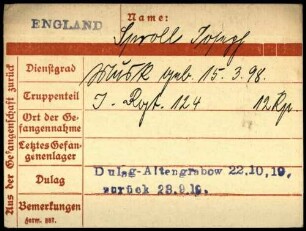 ENGLAND
Name:
Sproll Josef
Dienstgrad
Musk. geb. 15.3.98.
Truppenteil
J. Rgt. 124 12 Kp.
Ort der Gefangennahme
Letztes Gefangenenlager
Dulag
Dulag-Altengrabow 22.10.19.
zurück 28.9.19.
Bemerkungen
Aus der Gefangenschaft zurück